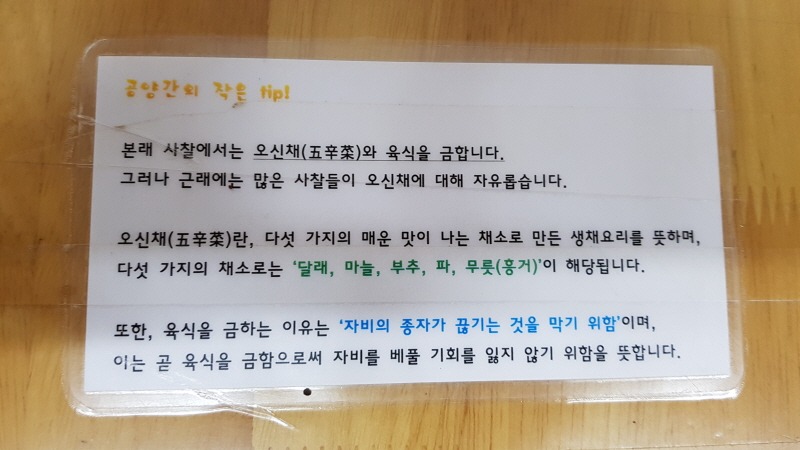 공양간의 작은 tip!
본래 사찰에서는 오신채(五辛菜)와 육식을 금합니다.
그러나 근래에는 많은 사찰들이 오신채에 대해 자유롭습니다.
오신채(五辛菜)란, 다섯 가지의 매운 맛이 나는 채소로 만든 생채요리를 뜻하며,
다섯 가지의 채소로는 ‘달래, 마늘, 부추, 파, 무릇(흥거)’이 해당됩니다.
또한, 육식을 금하는 이유는 ‘자비의 종자가 끊기는 것을 막기 위함’이며,
이는 곧 육식을 금함으로써 자비를 베풀 기회를 잃지 않기 위함을 뜻합니다.